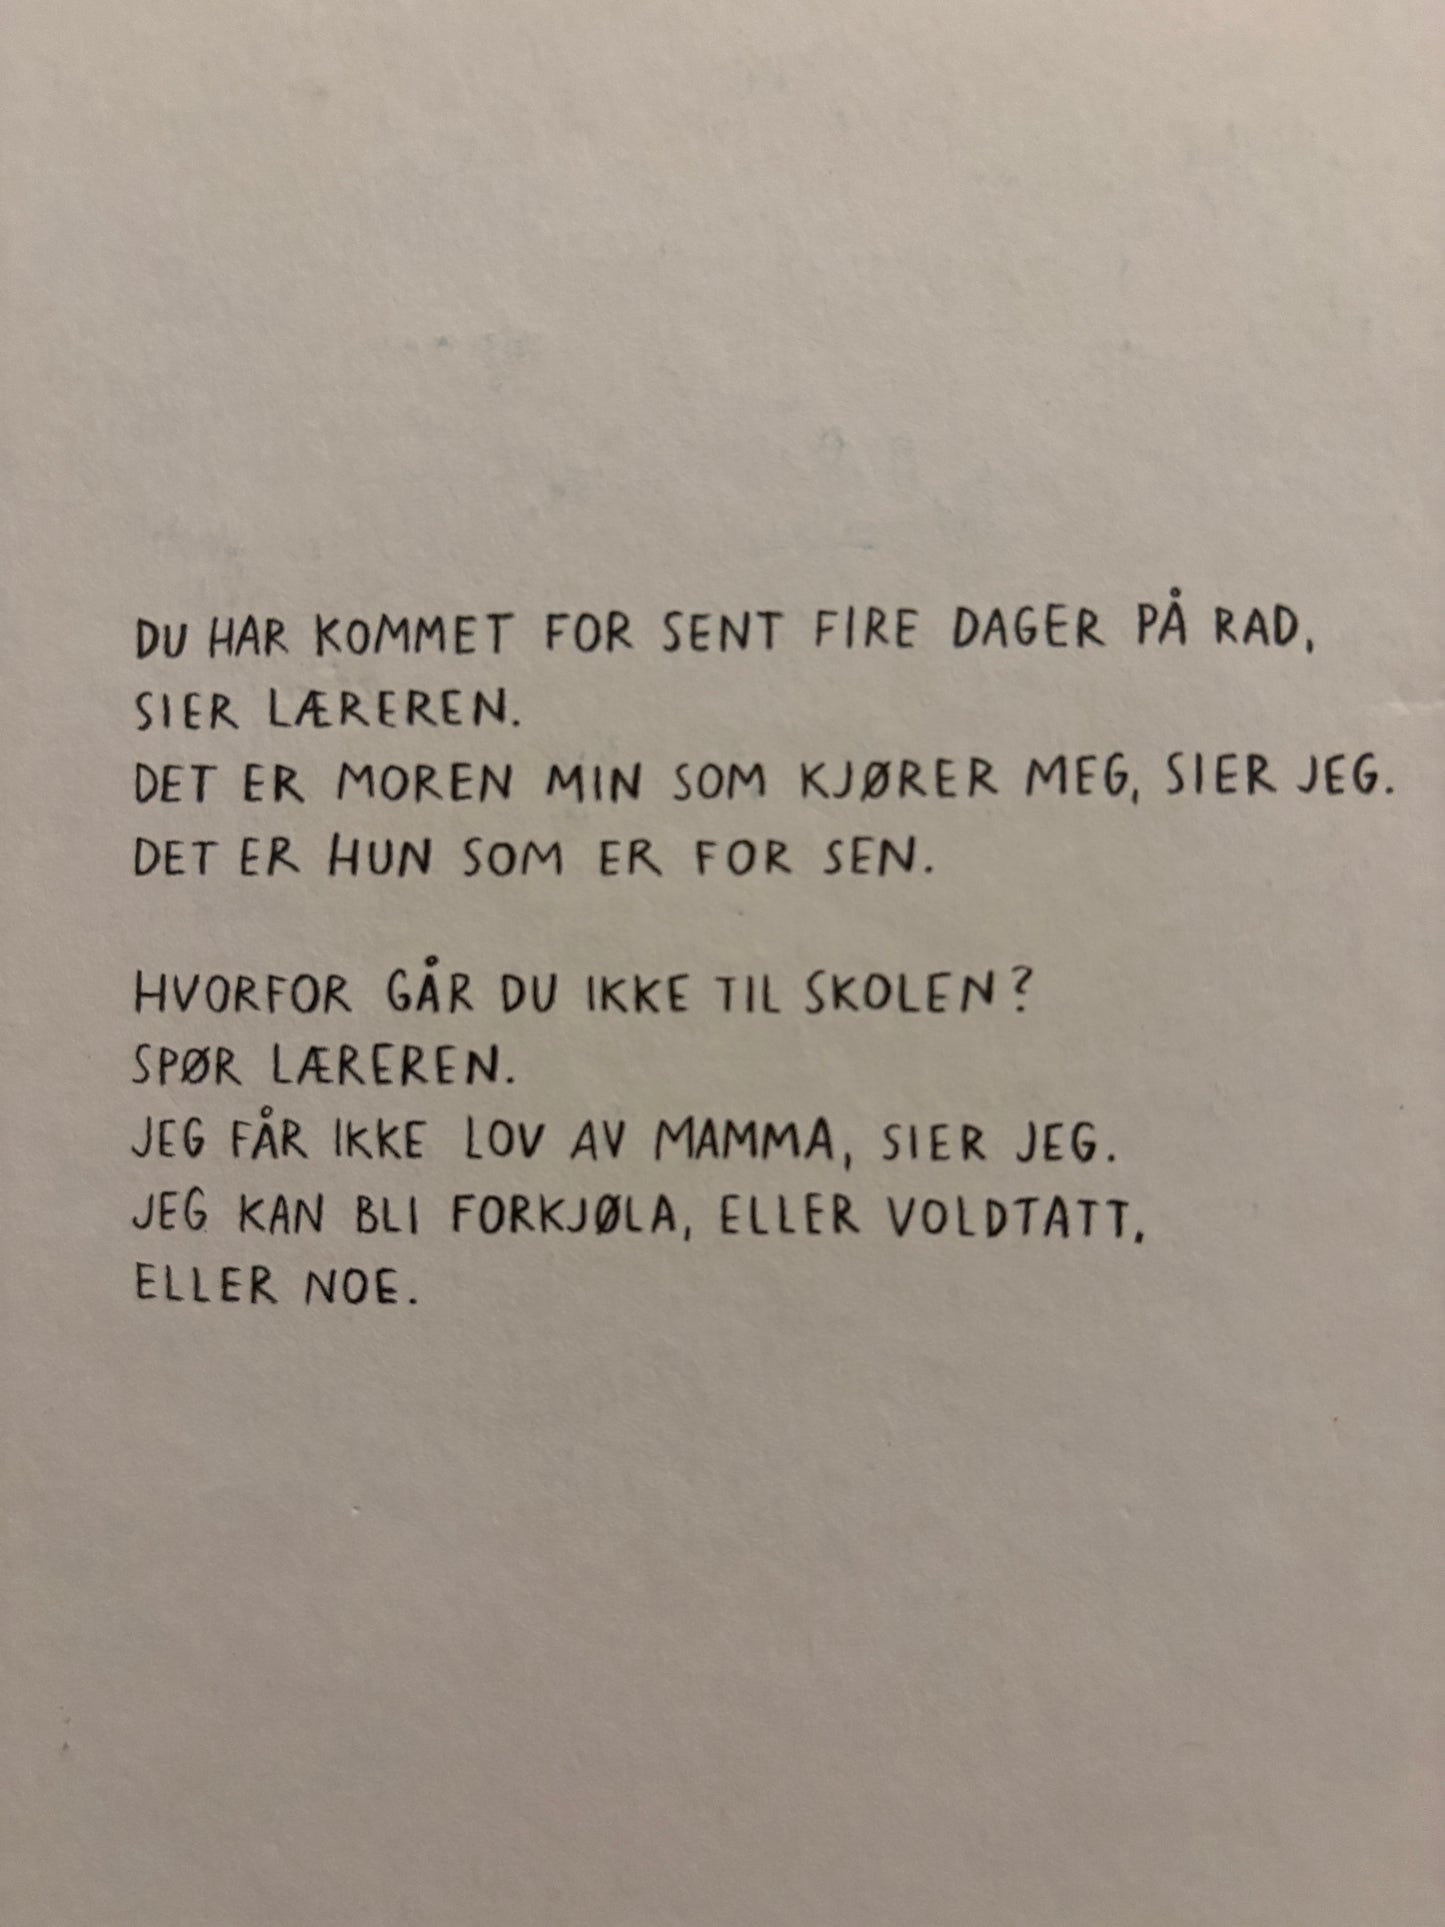 DU HAR KOMMET FOR SENT FIRE DAGER PÅ RAD,
SIER LÆREREN.
DET ER MOREN MIN SOM KJØRER MEG, SIER JEG.
DET ER HUN SOM ER FOR SEN.
HVORFOR GÅR DU IKKE TIL SKOLEN?
SPØR LÆREREN.
JEG FÅR IKKE LOV AV MAMMA, SIER JEG.
JEG KAN BLI FORKJØLA, ELLER VOLDTATT.
ELLER NOE.